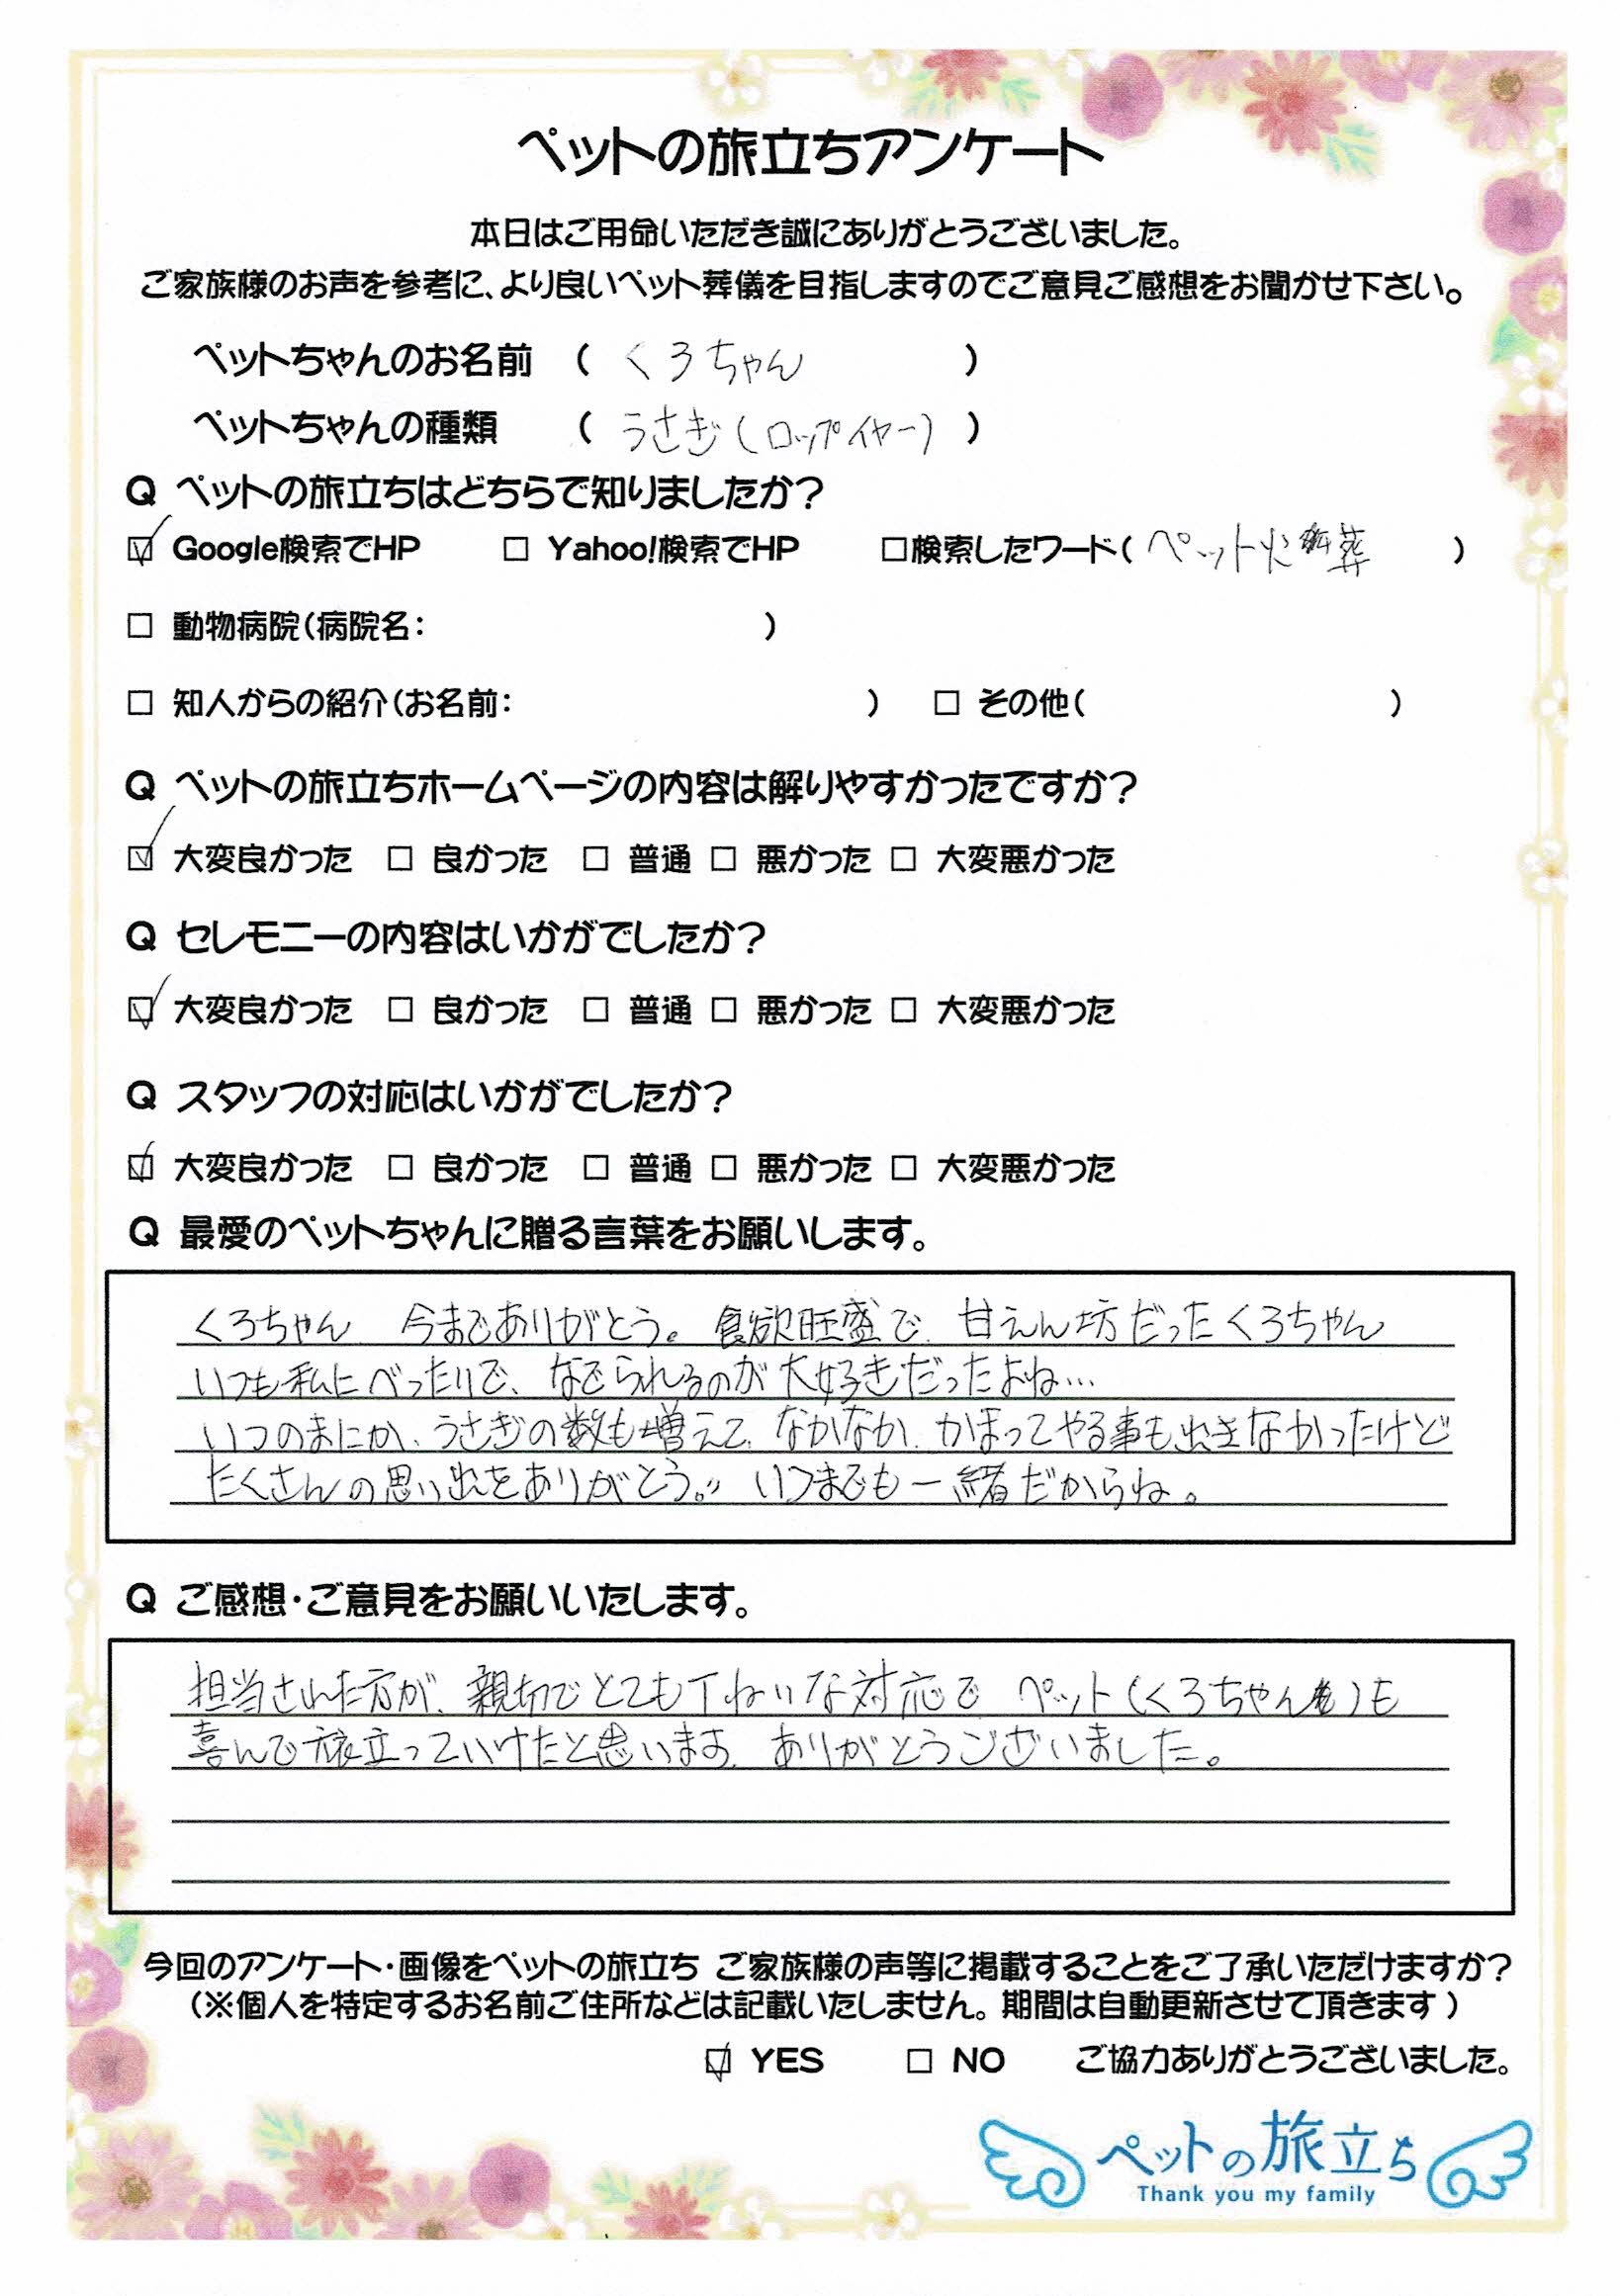 ペットの旅立ちアンケート
本日はご用命いただき誠にありがとうございました。
ご家族様のお声を参考に、より良いペット葬儀を目指しますのでご意見ご感想をお聞かせ下さい。
ペットちゃんのお名前 ( くろちゃん )
ペットちゃんの種類 ( うさぎ(ロップイヤー) )
Q ペットの旅立ちはどちらで知りましたか?
☑ Google検索でHP □ Yahoo!検索でHP □検索したワード( ペット火葬 )
□ 動物病院(病院名: )
□ 知人からの紹介(お名前: ) □ その他( )
Q ペットの旅立ちホームページの内容は解りやすかったですか?
☑ 大変良かった □ 良かった □ 普通 □ 悪かった □ 大変悪かった
Q セレモニーの内容はいかがでしたか?
☑ 大変良かった □ 良かった □ 普通 □ 悪かった □ 大変悪かった
Q スタッフの対応はいかがでしたか?
☑ 大変良かった □ 良かった □ 普通 □ 悪かった □ 大変悪かった
Q 最愛のペットちゃんに贈る言葉をお願いします。
くろちゃん 今までありがとう。食欲旺盛で、甘えん坊だったくろちゃん
いつも私にべったりで、なでられるのが大好きだったよね…
いつのまにか、うさぎの数も増えて、なかなか、かまってやる事も出きなかったけど
たくさんの思い出をありがとう。 いつまでも一緒だからね。
Q ご感想・ご意見をお願いいたします。
担当された方が、親切でとても丁ねいな対応で ペット(くろちゃん)も
喜んで旅立っていけたと思います。ありがとうございました。
今回のアンケート・画像をペットの旅立ち ご家族様の声等に掲載することをご了承いただけますか?
(※個人を特定するお名前ご住所などは記載いたしません。期間は自動更新させて頂きます)
☑ YES □ NO ご協力ありがとうございました。
ペットの旅立ち
Thank you my family